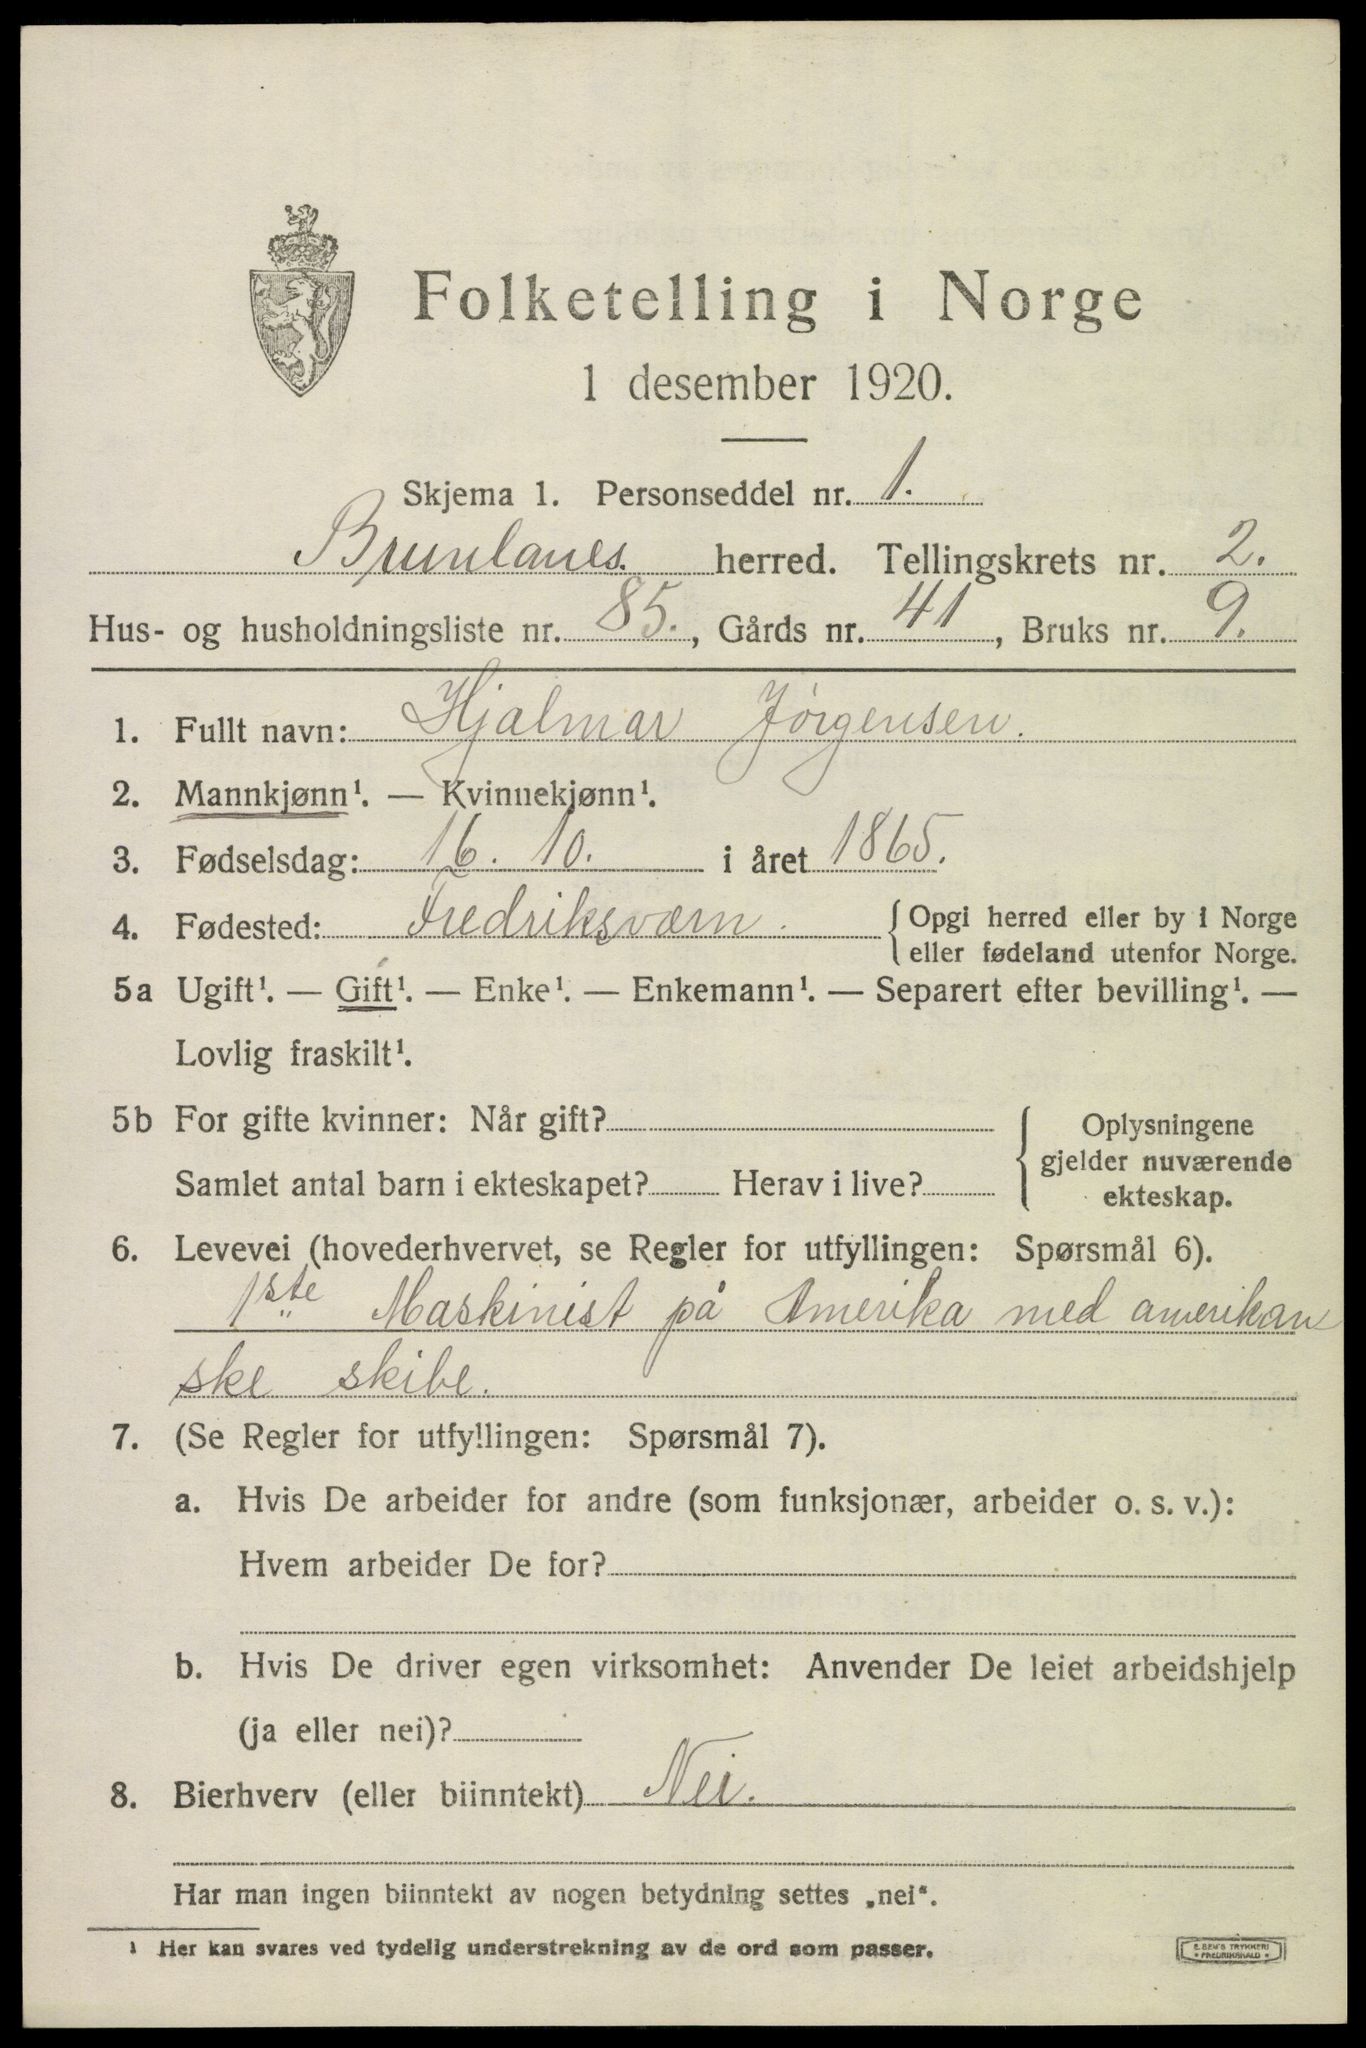 Folketelling i Norge
1 desember 1920.
Skjema 1. Personseddel nr. 1.
Brunlanes herred. Tellingskrets nr. 2.
Hus- og husholdningsliste nr. 85., Gårds nr. 41, Bruks nr. 9.
1. Fullt navn: Hjalmar Jørgensen.
2. Mannkjønn¹. — Kvinnekjønn¹.
3. Fødselsdag: 16. 10. i året 1865.
4. Fødested: Fredriksværn. { Opgi herred eller by i Norge
eller fødeland utenfor Norge.
5a Ugift¹. — Gift¹. — Enke¹. — Enkemann¹. — Separert efter bevilling¹. —
Lovlig fraskilt¹.
5b For gifte kvinner: Når gift?
Samlet antal barn i ekteskapet? Herav i live?
Oplysningene
gjelder nuværende
ekteskap.
6. Levevei (hovederhvervet, se Regler for utfyllingen: Spørsmål 6).
1ste Maskinist på Amerika med amerikan
ske skibe.
7. (Se Regler for utfyllingen: Spørsmål 7).
a. Hvis De arbeider for andre (som funksjonær, arbeider o. s. v.):
Hvem arbeider De for?
b. Hvis De driver egen virksomhet: Anvender De leiet arbeidshjelp
(ja eller nei)?
8. Bierhverv (eller biinntekt) Nei.
Har man ingen biinntekt av nogen betydning settes „nei“.
¹ Her kan svares ved tydelig understrekning av de ord som passer.
E. SEM'S TRYKKERI
FREDRIKSHALD